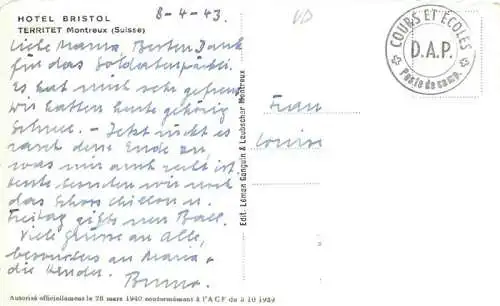 HOTEL BRISTOL
TERRITET Montreux (Suisse)
8-4-43.
Liebe Mama, Besten Dank
für das Soldatenpäckli.
Es hat mich sehr gefreut
wir hatten heute gehörig
Schnee. – Jetzt rückt es
rasch dem Ende zu
was mir auch recht ist.
heute besuchten wir noch
das Schloss Chillon u.
Freitag gibts nen Ball.
Viele Grüsse an alle,
besonders an Mama
die Kinder. Bruno.
Autorisé officiellement le 28 mars 1940 conformément à l'A C F du 3 10 1939
Edit. Léman Ganguin & Laubscher Montreux
Frau
Louise
COURS ET ECOLES
D.A.P.
Poste de camp.